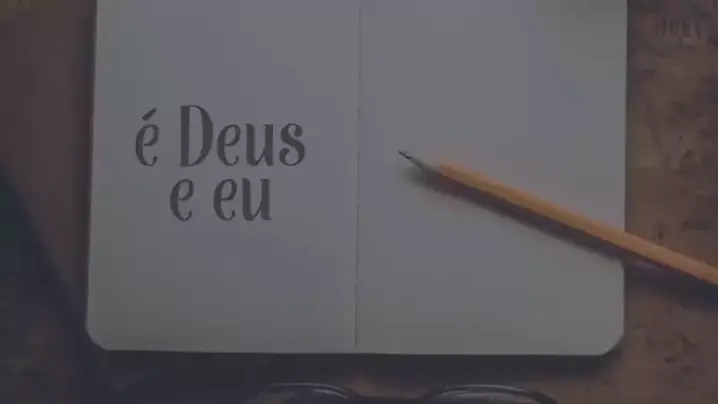 é Deus
e eu